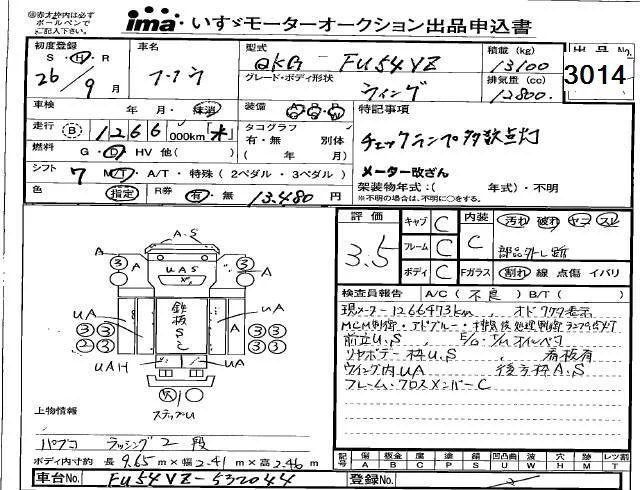 ㊟赤太枠内は必ず
ボールペンで
ご記入下さい。
ima いすゞモーターオークション出品申込書
初度登録 S・H・R 26年 9月
車名 フソウ
型式 QKG - FU54VZ
グレード・ボディ形状 ウィング
積載 (kg) 13100
排気量 (cc) 12800
出品No. 3014
車検 年 月・抹消
装備
特記事項
走行 B 1266 000km「*」
タコグラフ 有・無 別体 ( 年 月)
チェックランプ多数点灯
燃料 G・D・HV 他( )
メーター改ざん
シフト 7 M/T・A/T・特殊 (2ペダル・3ペダル)
架装物年式:( 年式)・不明
※不明の場合は、不明に○をする。
色 指定 R券 有・無 13,480 円
評価 3.5
キャブ C
フレーム C
ボディ C
内装 C
汚れ 破れ ヤニ スレ
部品外し跡
Fガラス 割れ 線 点傷 イバリ
検査員報告 A/C( 不良 ) B/T( )
現メーター1266473km, オドワタ表示
MCM制御・アドブルー・排気後処理制御ランプ点灯
前立U.S, E/O・T/Mオイルベコ
リヤボデー枠U.S, 看板有
ウイング内UA 後方枠A.S
フレーム・クロスメンバーC
A.S
3 A A 3
UAS
UA 鉄板SC A UA
3 3 3 3
2 3 3 3
UAH UA
ステップU
上物情報
パブコ ラッシング2段
ボディ内寸約 長 9.65 m × 幅 2.41 m × 高 2.46 m
記号 傷A 板金B 腐C 塗P 錆S 凹凸曲U 波W 穴H 跡M レツ割T
車台No. FU54VZ-532044
登録No.